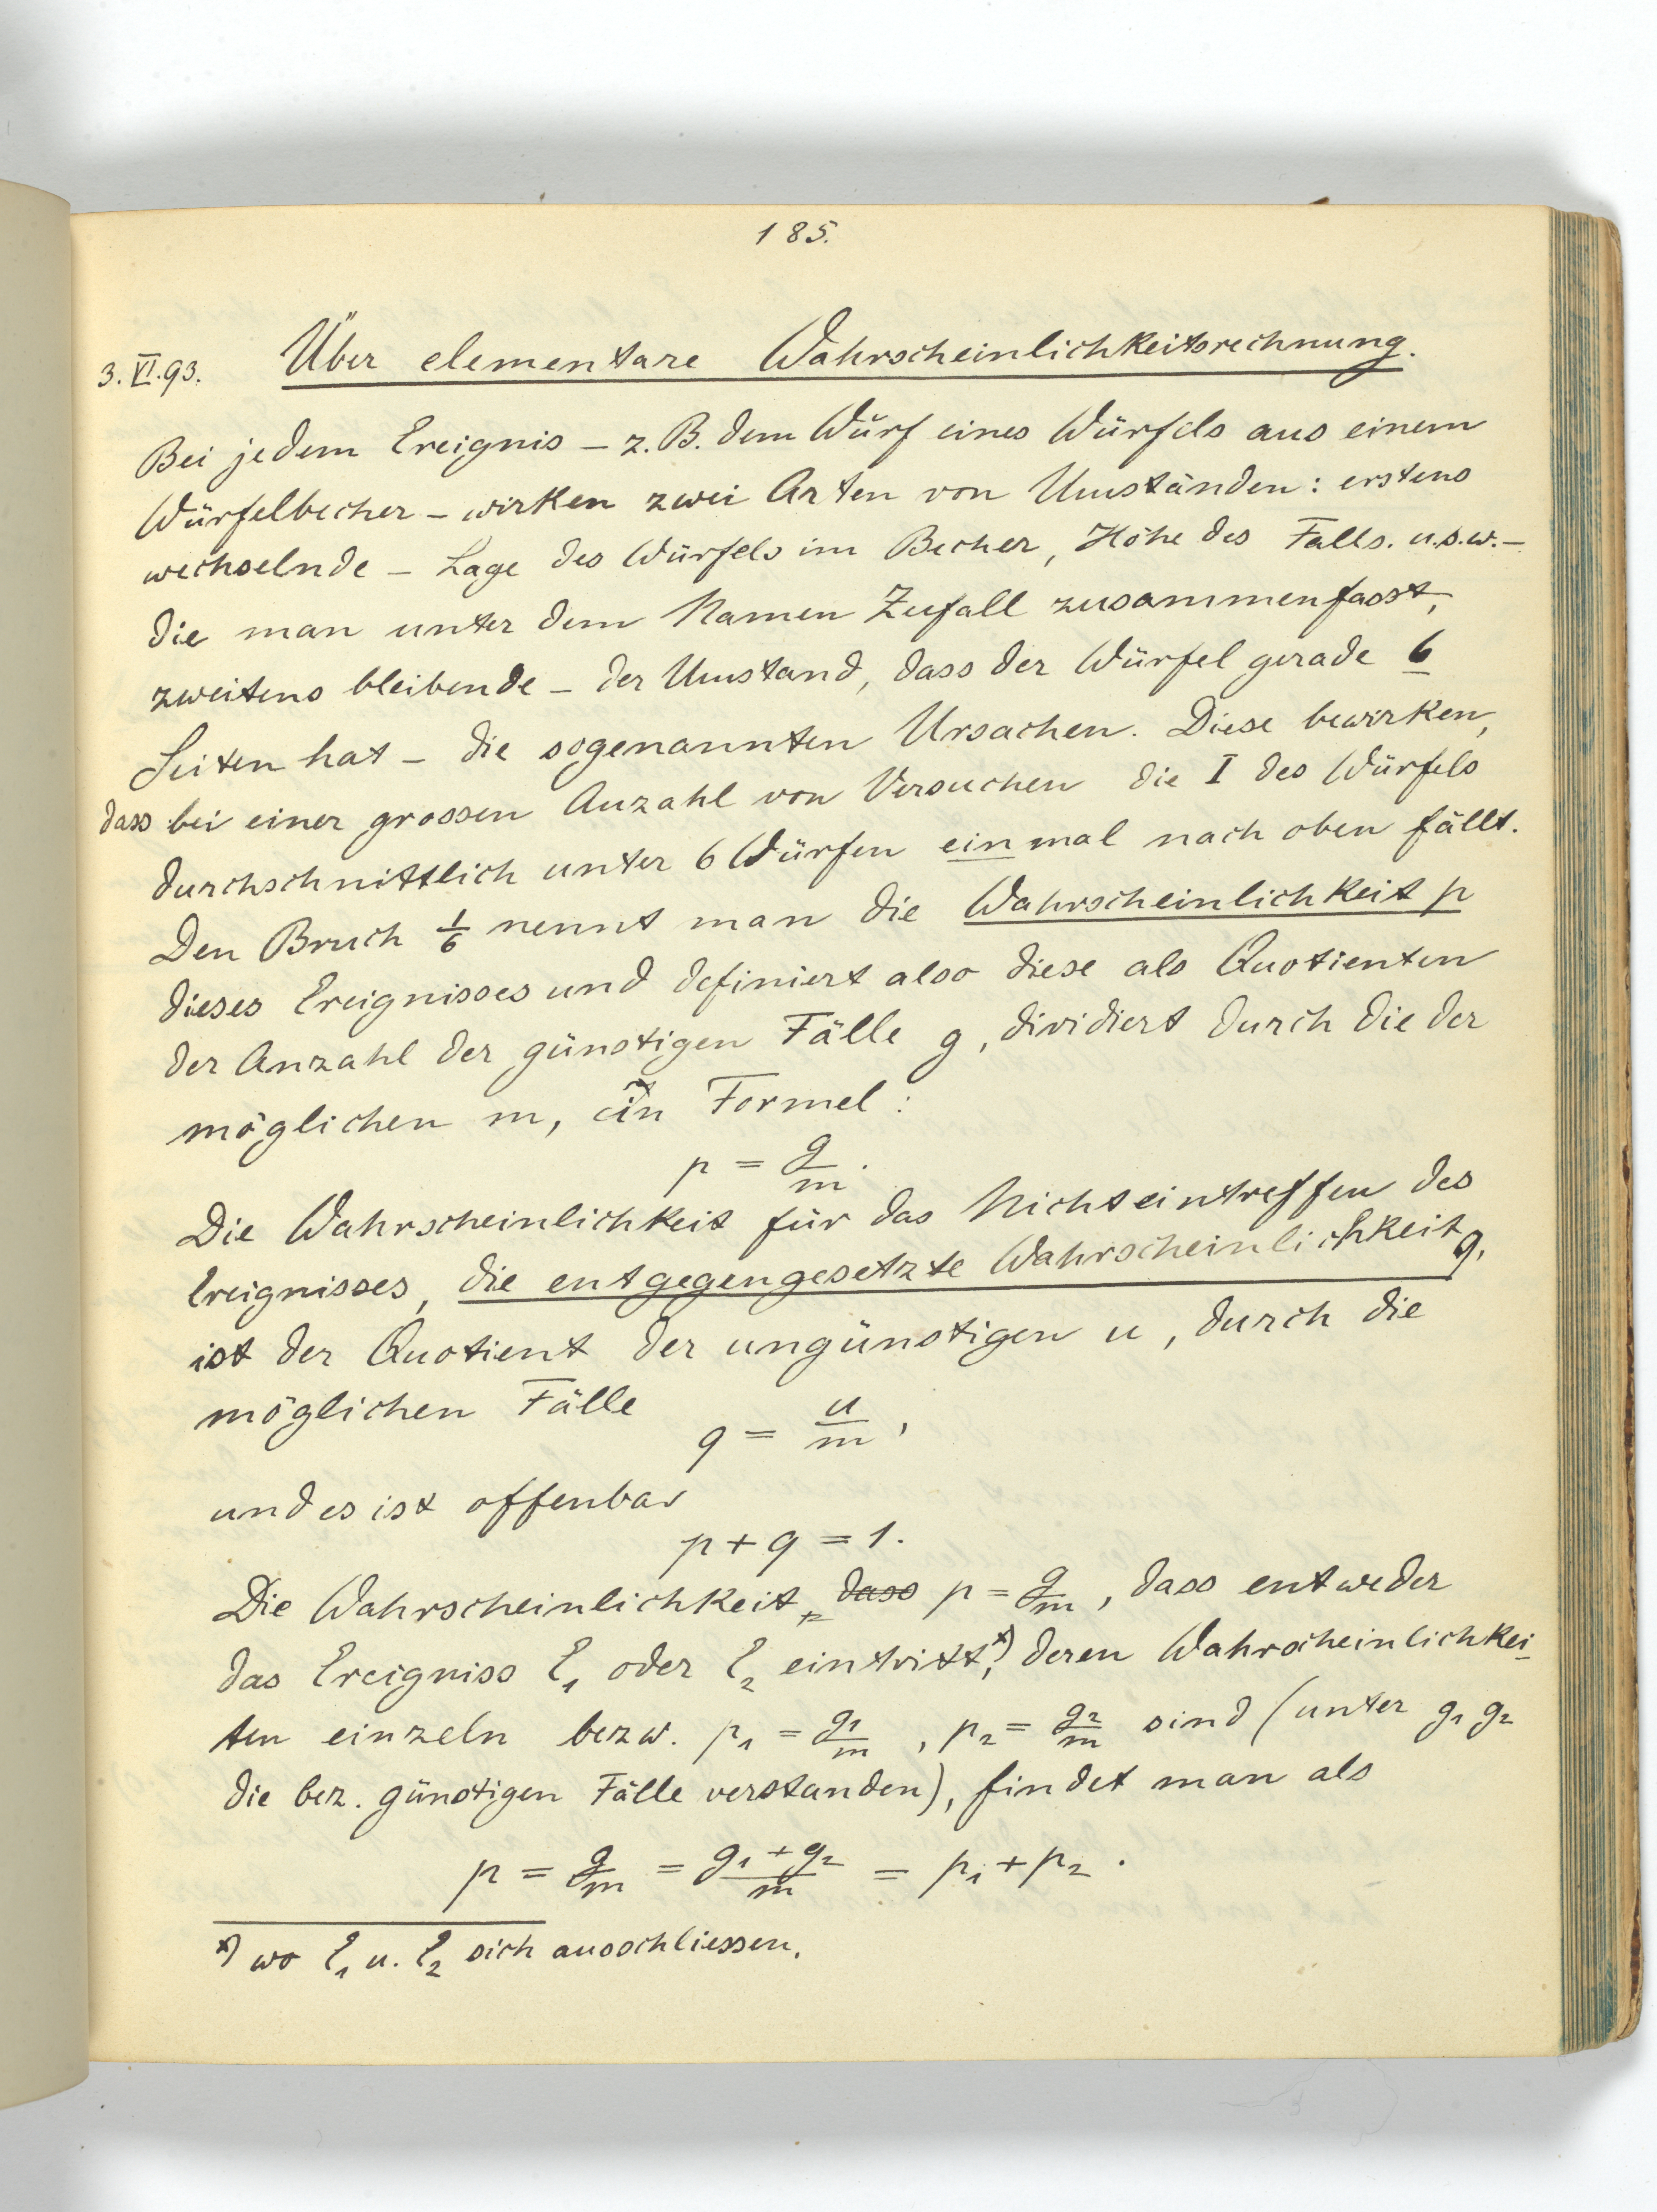 185.
3. VI. 93. Über elementare Wahrscheinlichkeitsrechnung.
Bei jedem Ereignis – z. B. dem Wurf eines Würfels aus einem
Würfelbecher – wirken zwei Arten von Umständen: erstens
wechselnde – Lage des Würfels im Becher, Höhe des Falls. u.s.w. –
die man unter dem Namen Zufall zusammenfasst,
zweitens bleibende – der Umstand, dass der Würfel gerade 6
Seiten hat – die sogenannten Ursachen. Diese bewirken,
dass bei einer grossen Anzahl von Versuchen die I des Würfels
durchschnittlich unter 6 Würfen einmal nach oben fällt.
Den Bruch 1/6 nennt man die Wahrscheinlichkeit p
dieses Ereignisses und definiert also diese als Quotienten
der Anzahl der günstigen Fälle g, dividiert durch die der
möglichen m, in Formel:
p = g/m.
Die Wahrscheinlichkeit für das Nichteintreffen des
Ereignisses, die entgegengesetzte Wahrscheinlichkeit q,
ist der Quotient der ungünstigen u, durch die
möglichen Fälle
q = u/m,
und es ist offenbar
p + q = 1.
Die Wahrscheinlichkeit, dass p = g/m, dass entweder
das Ereigniss E1 oder E2 eintritt,*) deren Wahrscheinlichkei
ten einzeln bezw. p1 = g1/m, p2 = g2/m sind (unter g1 g2
die bez. günstigen Fälle verstanden), findet man als
p = g/m = g1 + g2/m = p1 + p2.
*) wo E1 u. E2 sich ausschliessen.